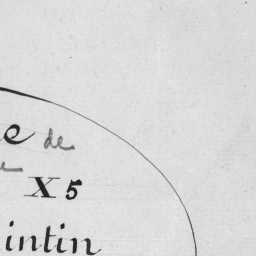 e de
e
X5
intin